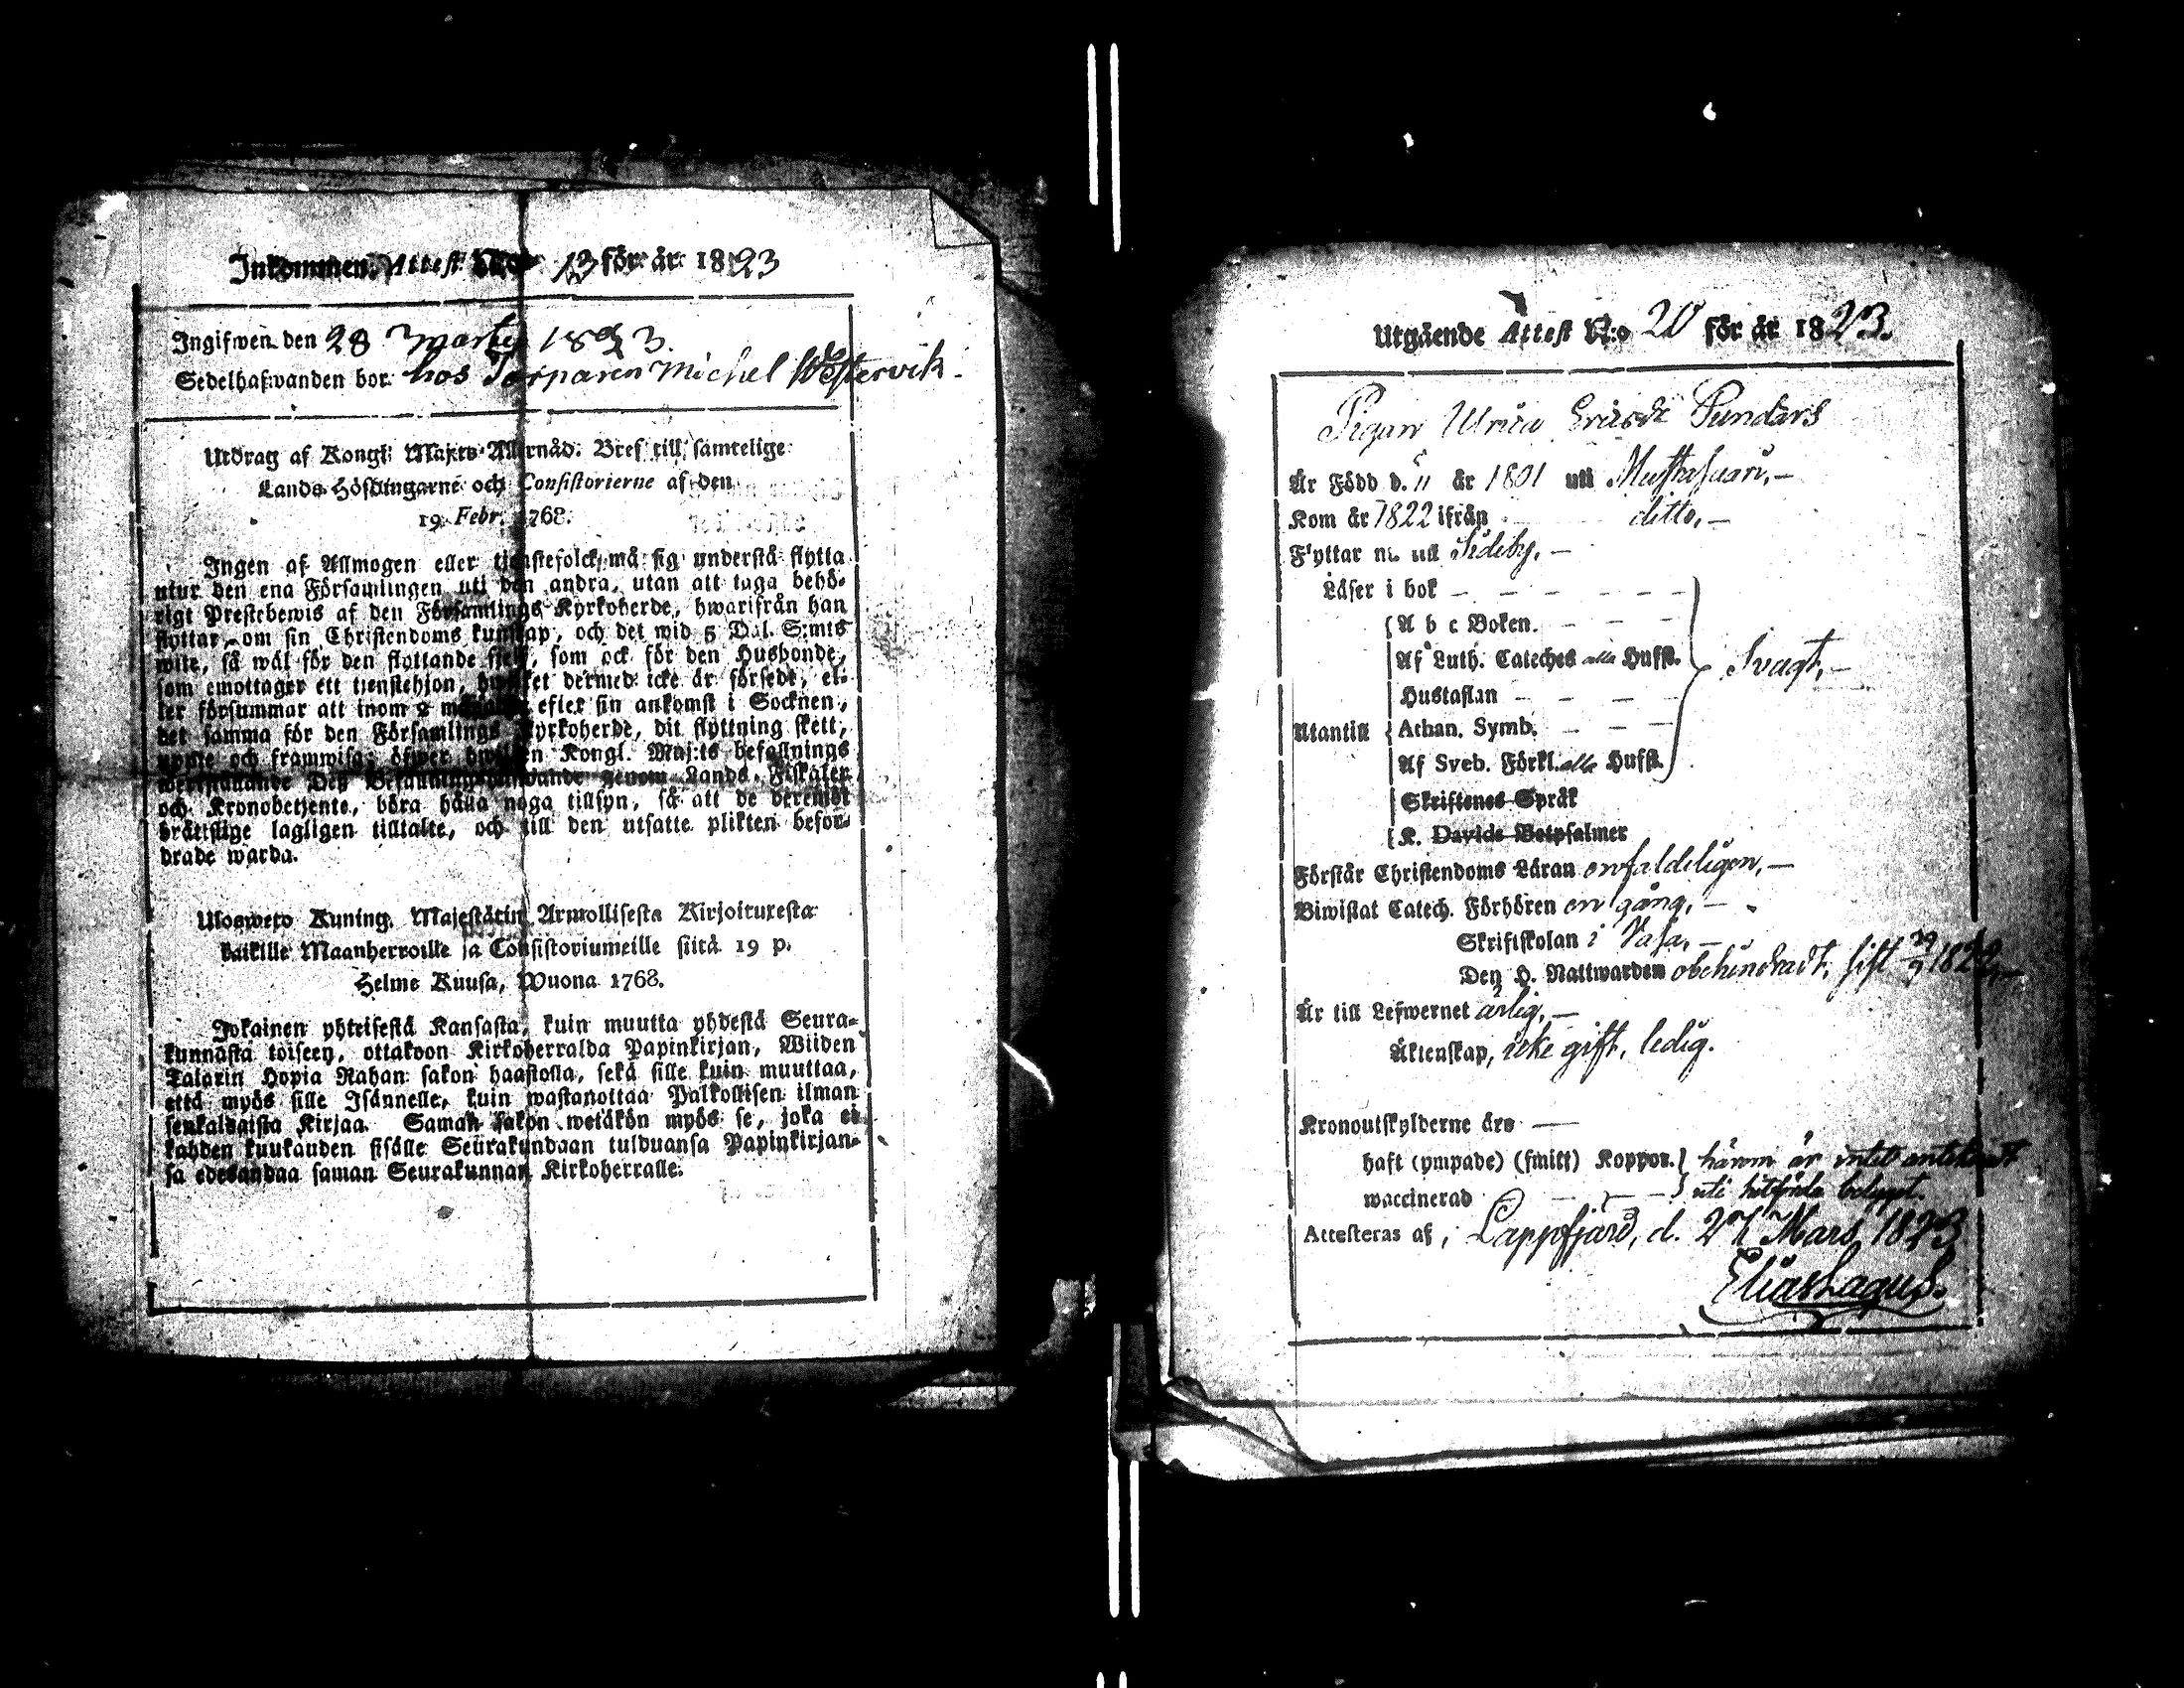 Inkommen Attest N:o 13 för år 1823
Ingifwen den 28 Martij 1823.
Sedelhafwanden bor hos Torparen Michel Westervik.
Utdrag af Kongl. Maj:ts Allernåd. Bref till samtelige
Lands-Höfdingarne och Consistorierne af den
19 Febr. 1768.
Ingen af Allmogen eller tjenstefolck må sig understå flytta
utur den ena Församlingen uti den andra, utan att taga behö-
rigt Prestebewis af den Församlings Kyrkoherde, hwarifrån han
flyttar, om sin Christendoms kunskap, och det wid 5 Dal. S:mts
wite, så wäl för den flyttande sielf, som ock för den Husbonde,
som emottager ett tjenstehjon, hwilket dermed icke är försedt, el-
ler försummar att inom 2 månader efter sin ankomst i Socknen,
det samma för den Församlings Kyrkoherde, dit flyttning skett,
uppte och framwisa; öfwer hwilken Kongl. Maj:ts befallnings
werkställande Dess Befallningshafwande genom Lands-Fiskaler
och Kronobetjente, böra hålla noga tillsyn, så att de deremot
brättslige lagligen tilltalte, och till den utsatte plikten befor-
drade warda.
Ulosweto Kuning. Majestätin Armollisesta Kirjoituxesta
kaikille Maanherroille ja Consistoriumeille siitä 19 p.
Helme Kuusa, Wuona 1768.
Jokainen yhteisestä Kansasta, kuin muutta yhdestä Seura-
kunnasta toiseen, ottakoon Kirkoherralda Papinkirjan, Wiiden
Talarin Hopia Rahan sakon haastolla, sekä sille kuin muuttaa,
että myös sille Isännelle, kuin wastanottaa Palkollisen ilman
senkaldaista Kirjaa. Saman sakon wetäkön myös se, joka ei
kahden kuukauden sisälle Seurakundaan tulduansa Papinkirjan-
sa edesandaa saman Seurakunnan Kirkoherralle.
Utgående Attest N:o 20 för år 1823.
Pigan Ulrica Ersdr Sundars
Är Född d. 11 år 1801 uti Mustasaari,—
Kom år 1822 ifrån ditto,—
Flyttar nu till Sideby,—
Läser i bok
A b c Boken.
Af Luth. Cateches alla Hufst.
Svagt,—
Hustaflan
Utantill Athan. Symb.
Af Sveb. Förkl. alla Hufst.
Skriftenes Språk
K. Davids Botpsalmer
Förstår Christendoms Läran enfaldeligen,—
Biwistat Catech. Förhören en gång,—
Skriftskolan i Vasa,—
Den H. Nattwarden obehindradt, sist
Är till Lefwernet ärlig,—
Äktenskap, icke gift, ledig.
Kronoutskylderne äro —
haft (ympade) (smitt) Koppor. härom är intet anteknadt
waccinerad uti hitförda betyget.
Attesteras af, Lappfjärd, d. 27 Mars 1823
Elias Lagus.